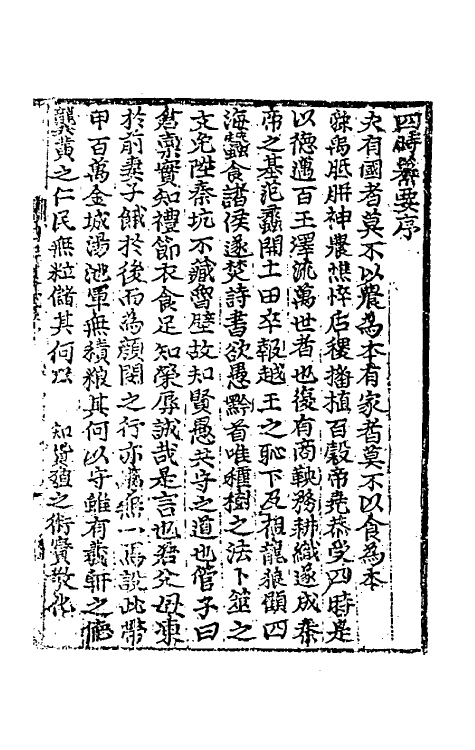 四時纂要序
夫有國者莫不以農為本有家者莫不以食為本
禹胼胝神農憔悴后稷播植百穀帝堯恭受四時是
以德邁百王澤流萬世者也復有商鞅務耕織遂成秦
帝之基范蠡開土田卒報越王之恥下及祖龍狼顧四
海蠶食諸侯遂焚詩書欲愚黔首唯種樹之法卜筮之
文免陞秦坑不藏魯壁故知賢愚共守之道也管子曰
倉禀實知禮節衣食足知榮辱誠哉是言也若父母凍
於前妻子餓於後而為顏閔之行亦萬無一焉設此幣
甲百萬金城湯池軍無積粮其何以守雖有羲軒之德
龔黃之仁民無粒儲其何以 知貨殖之術實教化